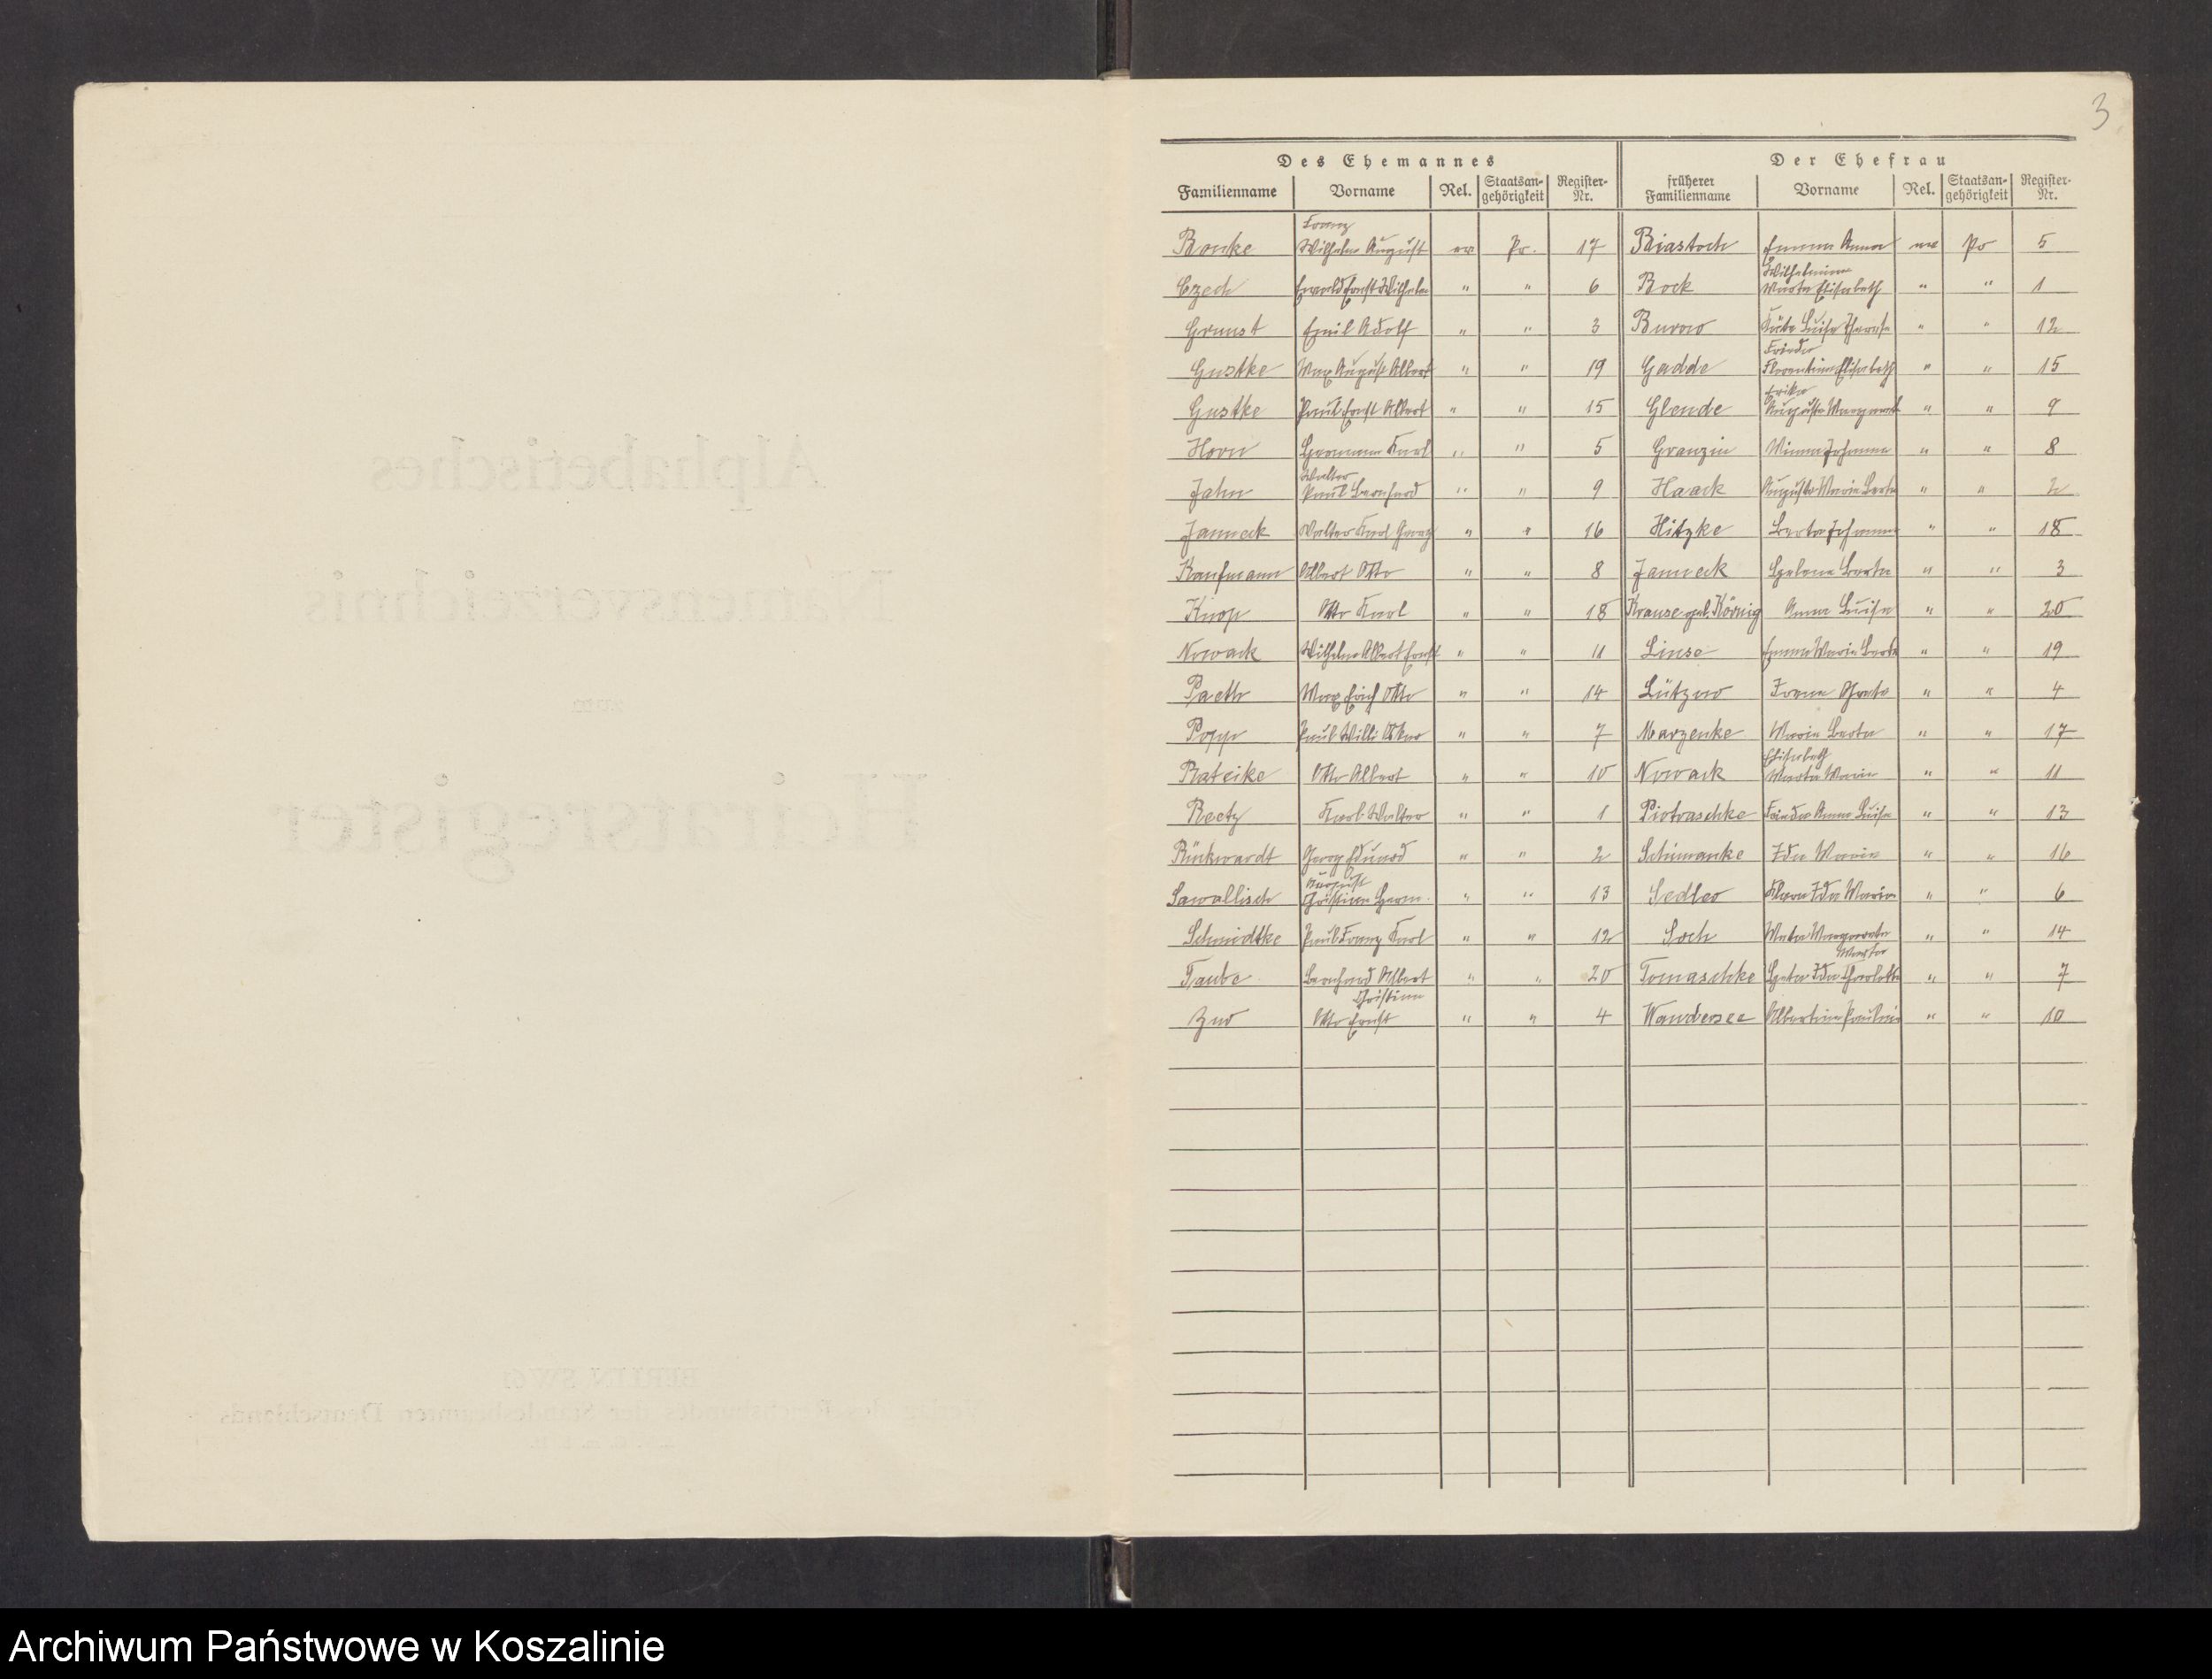 3
Des Ehemannes Der Ehefrau
Familienname Vorname Rel. Staatsangehörigkeit Register-Nr. früherer Familienname Vorname Rel. Staatsangehörigkeit Register-Nr.
Franz
Wilhelm August ev Pr. 17 Biastoch Emma Anna ev Pr 5
Wilhelmine
Czech Ewald Ernst Wilhelm " " 6 Bock Marta Elisabeth " " 1
Grunst Emil Adolf " " 3 Burow Luise " " 12
Frieda
Gustke Max August Albert " " 19 Gadde Florentine Elisabeth " " 15
Erika
Gustke Paul Ernst Albert " " 15 Glende Auguste Margaret " " 9
Horn Hermann Karl " " 5 Granzin Minna Johanna " " 8
Walter
Jahn Paul Bernhard " " 9 Haack Auguste Marie Berta " " 2
Janneck Walter Karl Georg " " 16 Hitzke Berta Johanna " " 18
Kaufmann Albert Otto " " 8 Janneck Helene Berta " " 3
Knop Otto Karl " " 18 Krause geb. Körnig Anna Luise " " 20
Nowack Wilhelm Albert Ernst " " 11 Linse Emma Marie Berta " " 19
Paeth Max Erich Otto " " 14 Lützow Grete " " 4
Popp Paul Willi Oskar " " 7 Marzenke Marie Berta " " 17
Elisabeth
Rateike Otto Albert " " 10 Nowack Marta Marie " " 11
Reetz Karl Walter " " 1 Piotraschke Frieda Anna Luise " " 13
Rückwardt Georg Eduard " " 2 Schimanke Ida Marie " " 16
August
Sawallisch Christian Herm. " " 13 Sedler Klara Ida Marie " " 6
Schmidtke Paul Franz Karl " " 12 Soch Meta Margarete " " 14
Marta
Taube Bernhard Albert " " 20 Tomaschke Herta Ida Charlotte " " 7
Christian
Otto Ernst " " 4 Wandersee Albertine Pauline " " 10
Alphabetisches
Namensverzeichnis
zum
Heiratsregister
BERLIN SW 61
Verlag des Reichsbundes der Standesbeamten Deutschlands
Archiwum Państwowe w Koszalinie